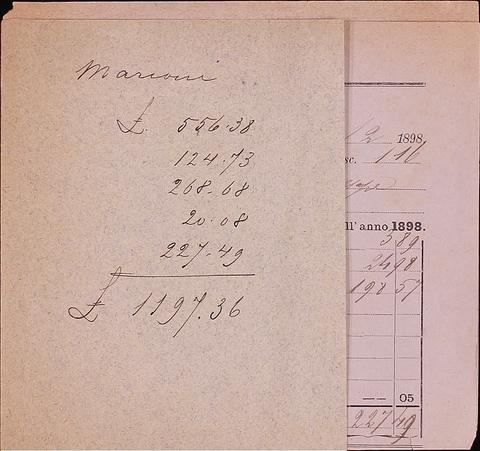 Marconi
£. 556.38
124.73
268.68
20.08
227.49
£ 1197.36
1898
sc. 116
ll'anno 1898.
5 89
24 98
198 57
05
227 49